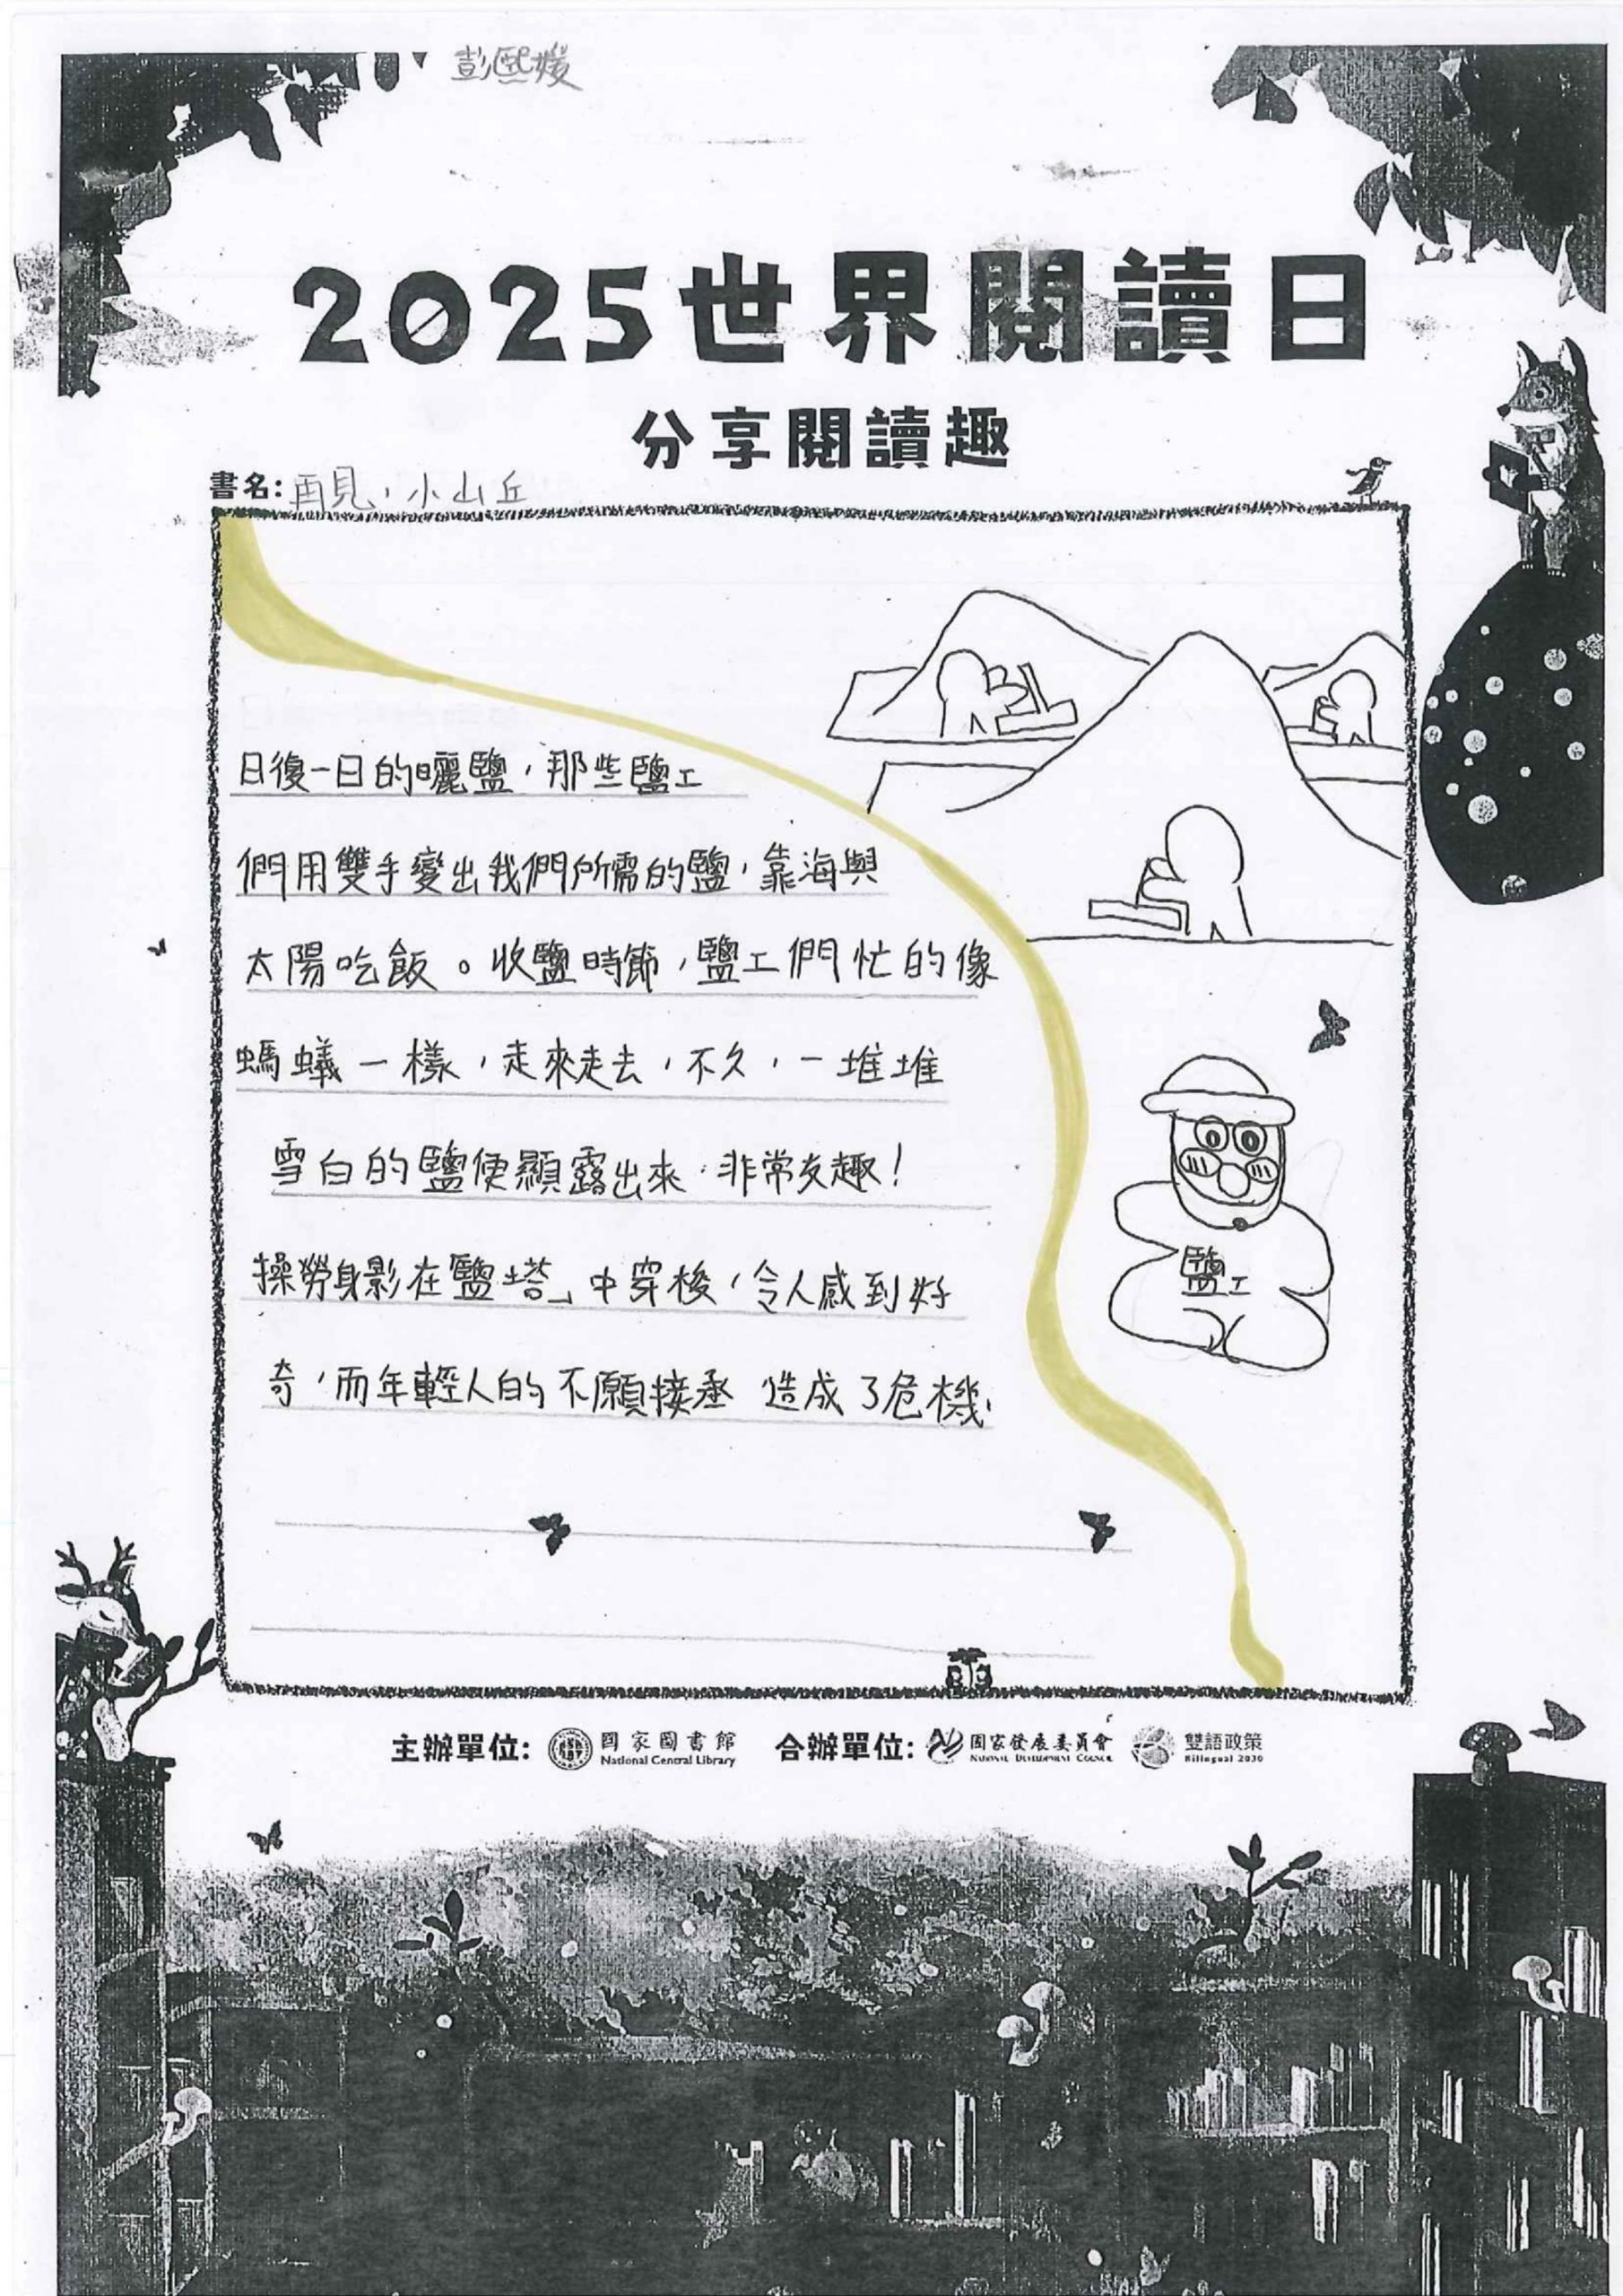 彭熙媛
2025世界閱讀日
分享閱讀趣
書名:再見,小山丘
日復一日的曬鹽,那些鹽工
們用雙手變出我們所需的鹽,靠海與
太陽吃飯。收鹽時節,鹽工們忙的像
螞蟻一樣,走來走去,不久,一堆堆
雪白的鹽便顯露出來,非常友趣!
操勞身影在「鹽塔」中穿梭,令人感到好
奇,而年輕人的不願接丞 造成了危機
鹽工
主辦單位: 國家圖書館 National Central Library 合辦單位: 國家發展委員會 National Development Council 雙語政策 Bilingual 2030